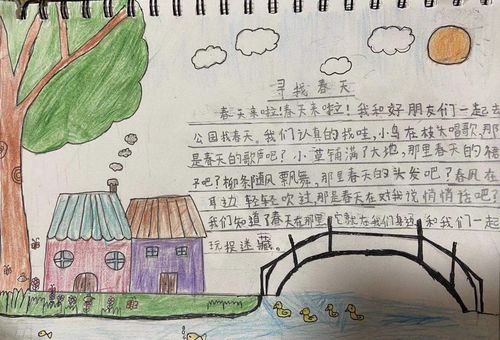 寻找春天
春天来啦!春天来啦!我和好朋友们一起去
公园找春天。我们认真的找哇,小鸟在枝头唱歌,那
是春天的歌声吧?小草铺满了大地,那里春天的裙
子吧?柳条随风飘舞,那里春天的头发吧?春风在
耳边轻轻吹过,那是春天在对我说悄悄话吧?
我们知道了春天在那里,它就在我们身边和我们一起
玩捉迷藏。